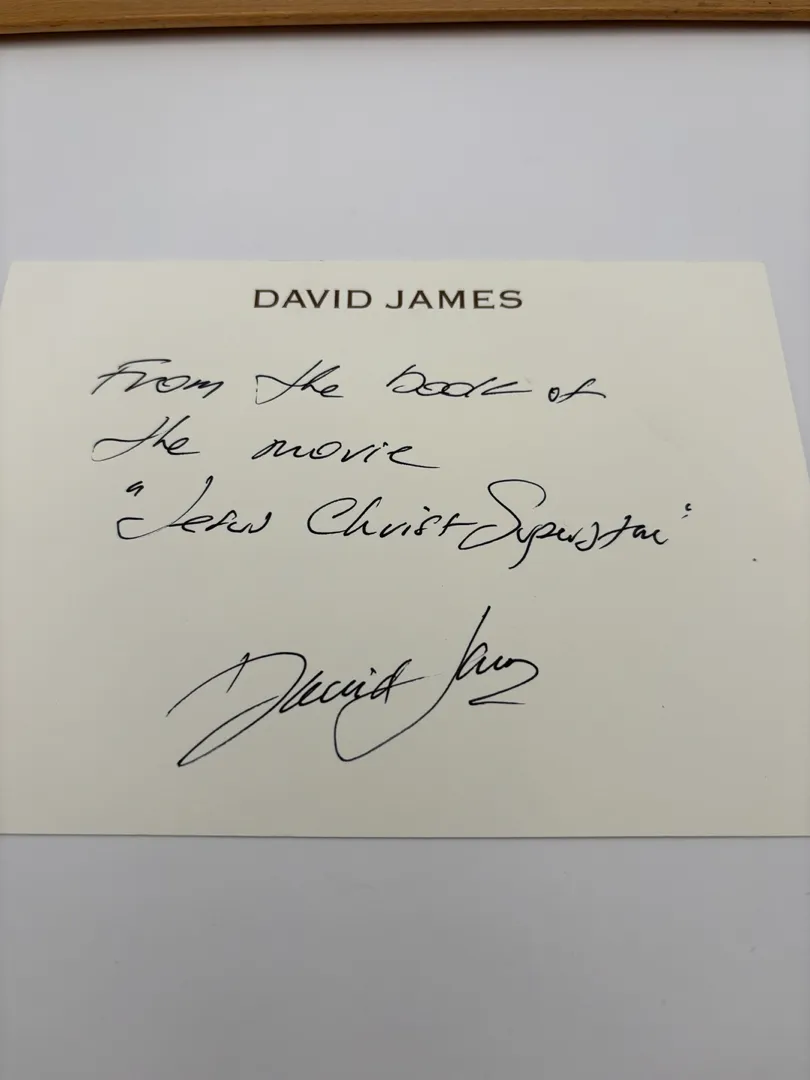 DAVID JAMES
From the book of
the movie
"Jesus Christ Superstar"
David James